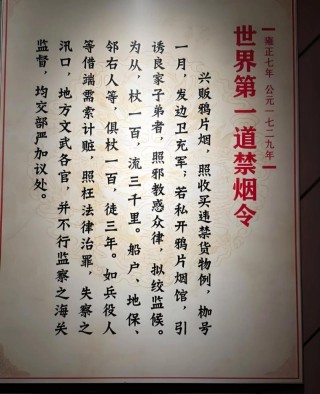 雍正七年 公元一七二九年
世界第一道禁烟令
兴贩鸦片烟，照收买违禁货物例，枷号
一月，发边卫充军；若私开鸦片烟馆，引
诱良家子弟者，照邪教惑众律，拟绞监候。
为从，杖一百，流三千里。船户、地保、
邻右人等，俱杖一百，徒三年。如兵役人
等借端需索计赃，照枉法律治罪，失察之
汛口，地方文武各官，并不行监察之海关
监督，均交部严加议处。